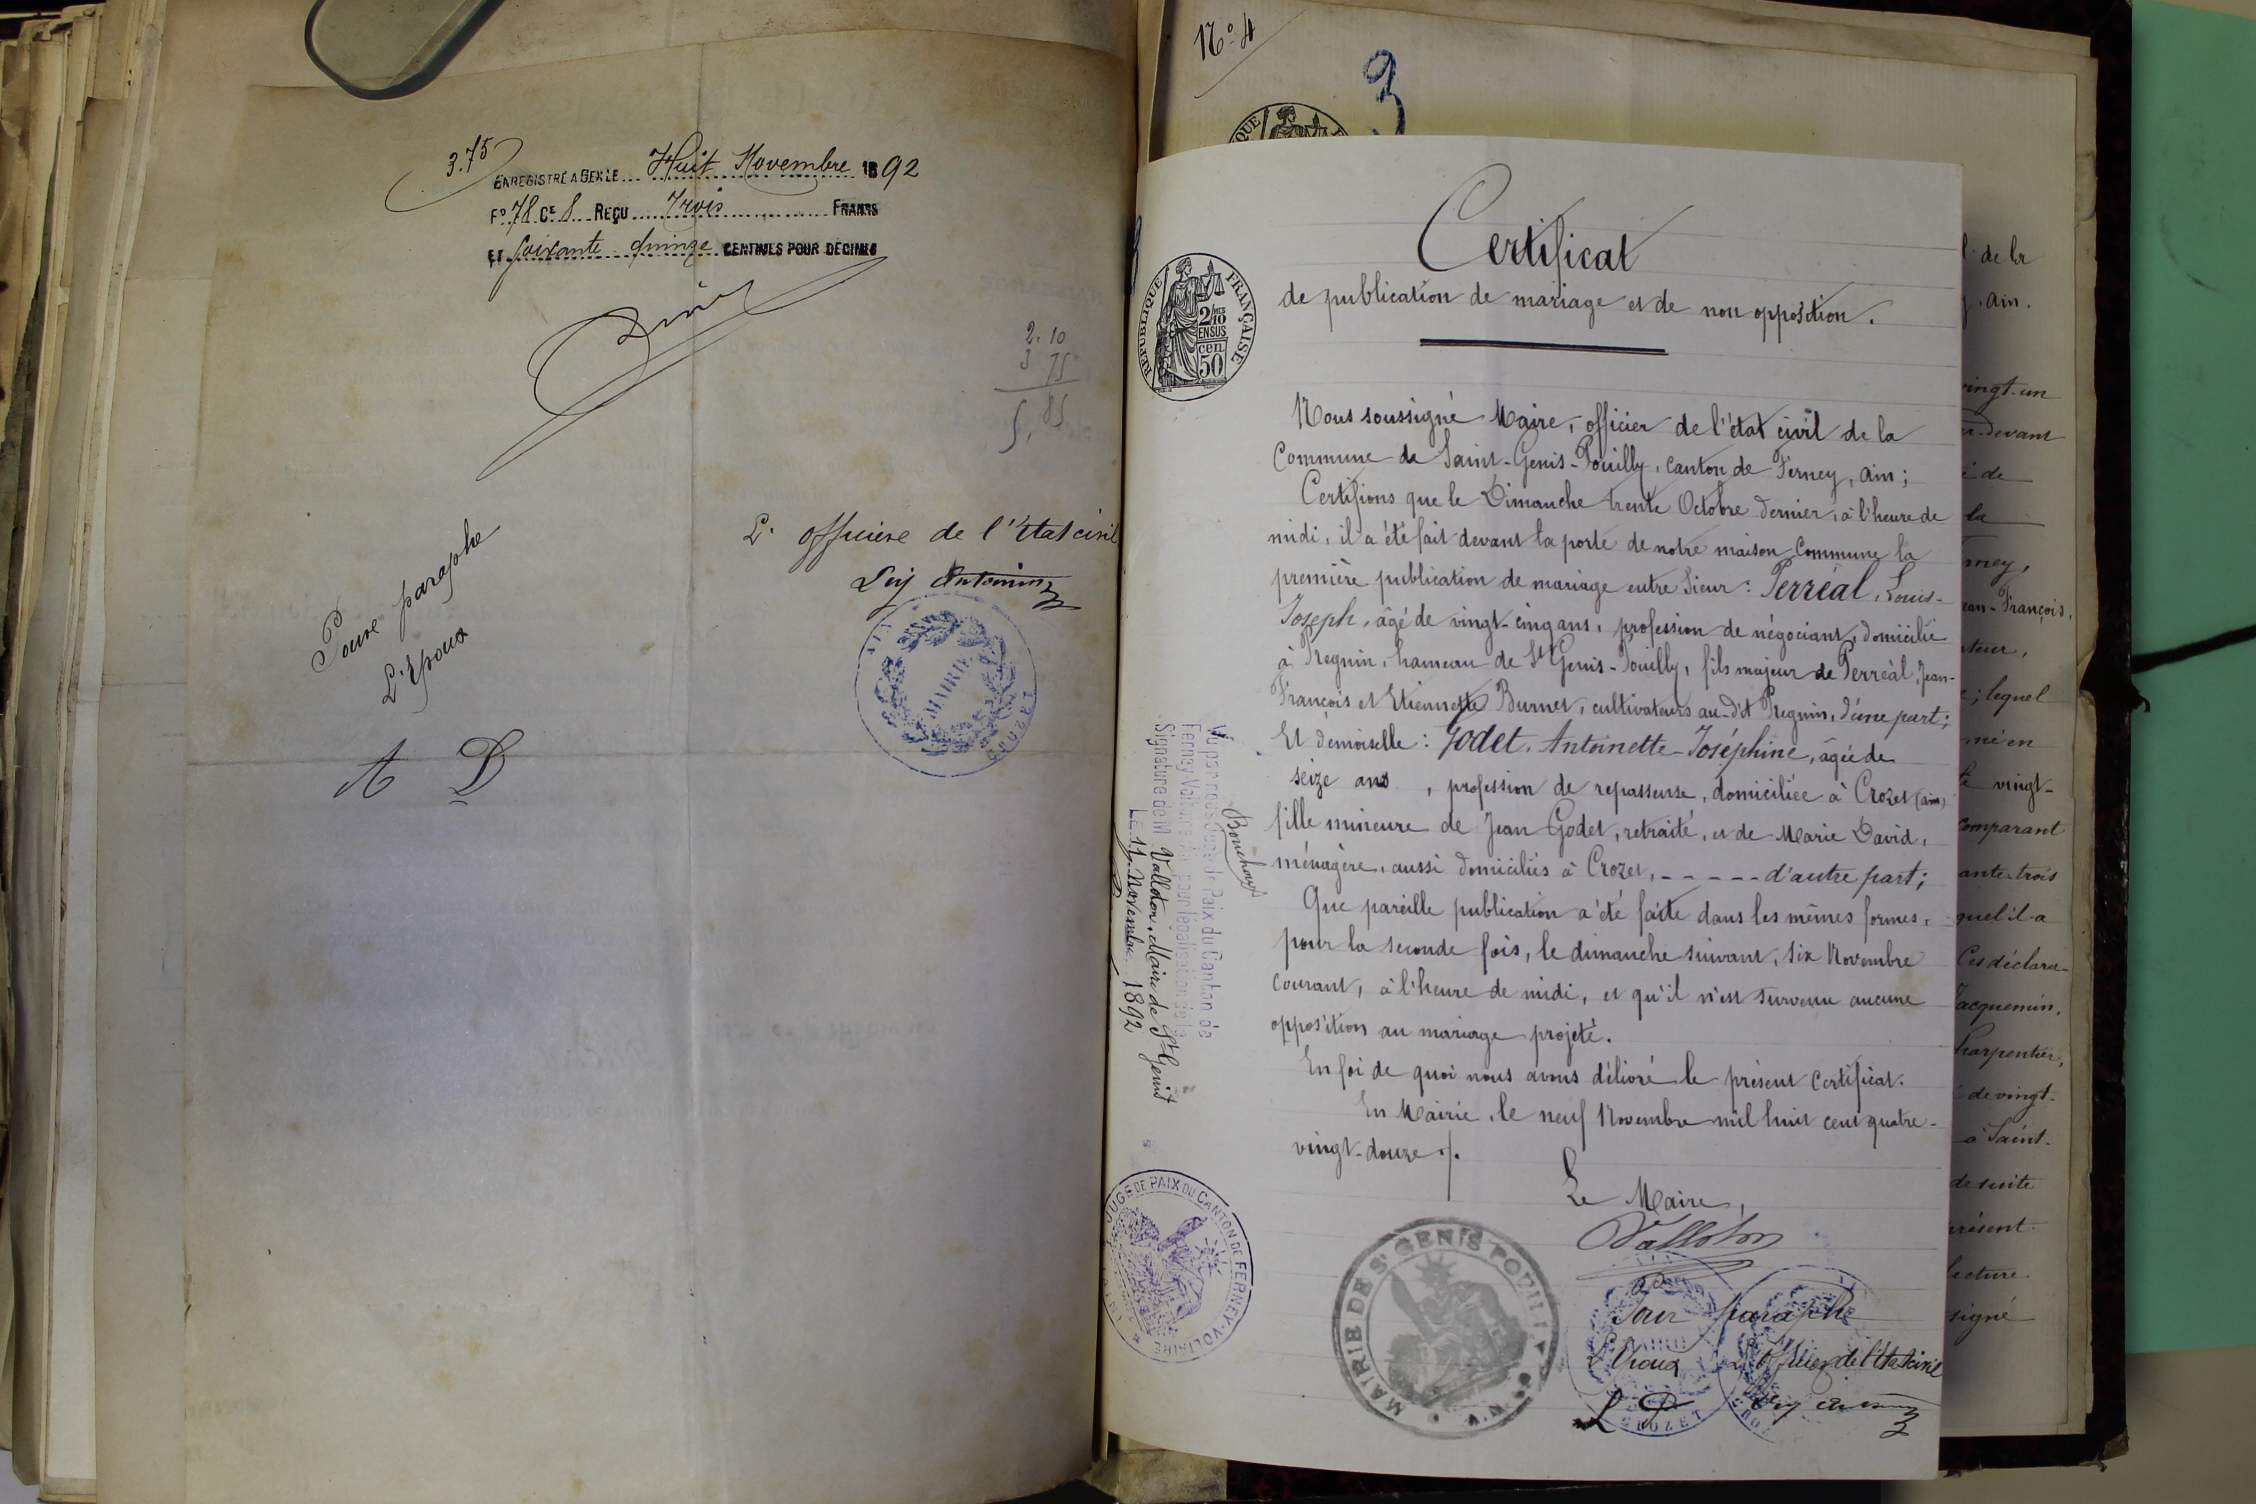 3.75
ENREGISTRÉ A GEX LE Huit Novembre 1892
F° 78 CE 8 REÇU Trois FRANCS
ET Soixante quinze CENTIMES POUR DÉCIMES
2.10
3 75
5,85
L' officiere de l'Etat civil
Pour paraphe
L'Epoux
A D
MAIRIE
AIN
CROZET
N° 4
3
RÉPUBLIQUE FRANÇAISE
2/10 EN SUS
50 cen
Certificat
de publication de mariage et de non opposition.
Nous soussigné Maire, officier de l'état civil de la
Commune de Saint-Genis-Pouilly, canton de Ferney, ain;
Certifions que le Dimanche trente Octobre dernier, à l'heure de
midi, il a été fait devant la porte de notre maison Commune la
première publication de mariage entre Sieur : Perréal, Louis-
Joseph, âgé de vingt-cinq ans, profession de négociant, domicilié
à Pregnin, hameau de St Genis-Pouilly, fils majeur de Perréal, Jean-
François et Etiennette Burnet, cultivateurs au-dit Pregnin, d'une part;
Et demoiselle : Godet, Antoinette-Joséphine, âgée de
seize ans, profession de repasseuse, domiciliée à Crozet (ain)
fille mineure de Jean Godet, retraité, et de Marie David,
ménagère, aussi domiciliés à Crozet, - - - - - d'autre part;
Que pareille publication a été faite dans les mêmes formes,
pour la seconde fois, le dimanche suivant, six Novembre
courant, à l'heure de midi, et qu'il n'est survenu aucune
opposition au mariage projeté.
En foi de quoi nous avons délivré le présent certificat.
En Mairie, le neuf Novembre mil huit cent quatre-
vingt-douze ./.
Le Maire,
Valloton
MAIRIE DE ST GENIS POUILLY
Pour paraphe
L'Epoux L'officier de l'Etat civil
L P
CROZET
Vu par nous Juge de Paix du Canton de
Ferney-Voltaire Ain pour légalisation de la
Signature de M Valloton, Maire de St Genis
Le 11 Novembre 1892
JUGE DE PAIX DU CANTON DE FERNEY-VOLTAIRE
de la
ain.
vingt-un
devant
de
la
ean-François,
; lequel
vingt-
comparant
ante-trois
quel il a
Ces déclara-
Jacquemin,
charpentier,
de vingt-
à Saint-
de suite
présent
lecture
signé